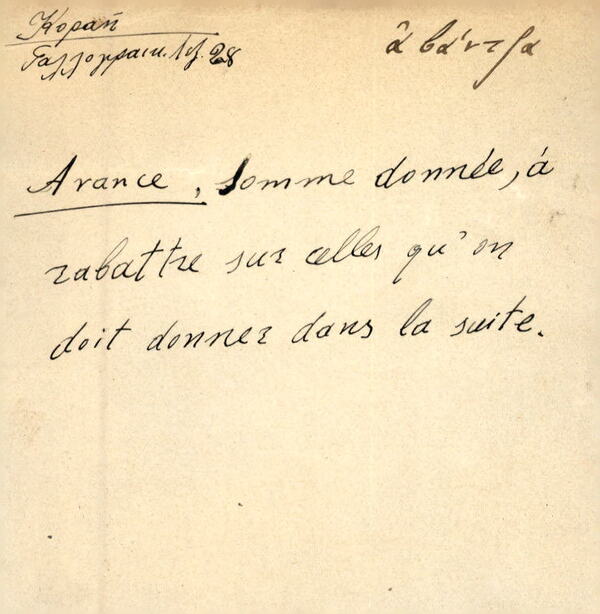 Κοραῆ
Γαλλογραικ. λεξ. 28
ἀβάντζα
Avance, somme donnée, à
rabattre sur celles qu'on
doit donner dans la suite.